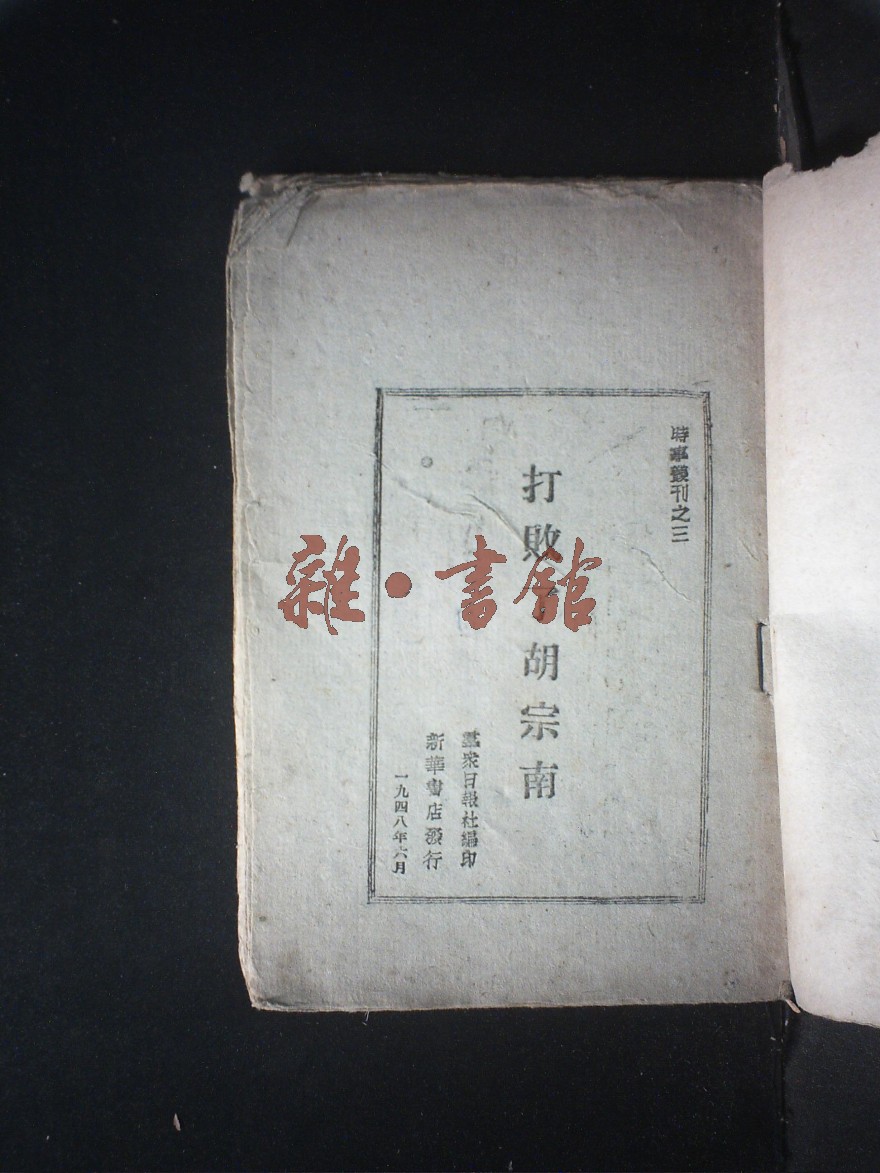 時事叢刊之三
打敗了胡宗南
羣眾日報社編印
新華書店發行
一九四八年六月
雜·書館